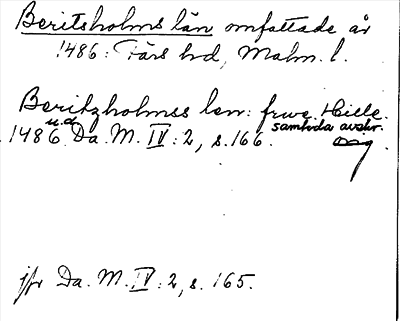 Beritsholms län omfattade år
1486: Färs hd, Malm. l.
Beritzholmss len: frwe. Hille.
1486 u.d. Da. M. IV: 2, s. 166. samtida avskr.
Orig
jfr Da. M. IV: 2, s. 165.